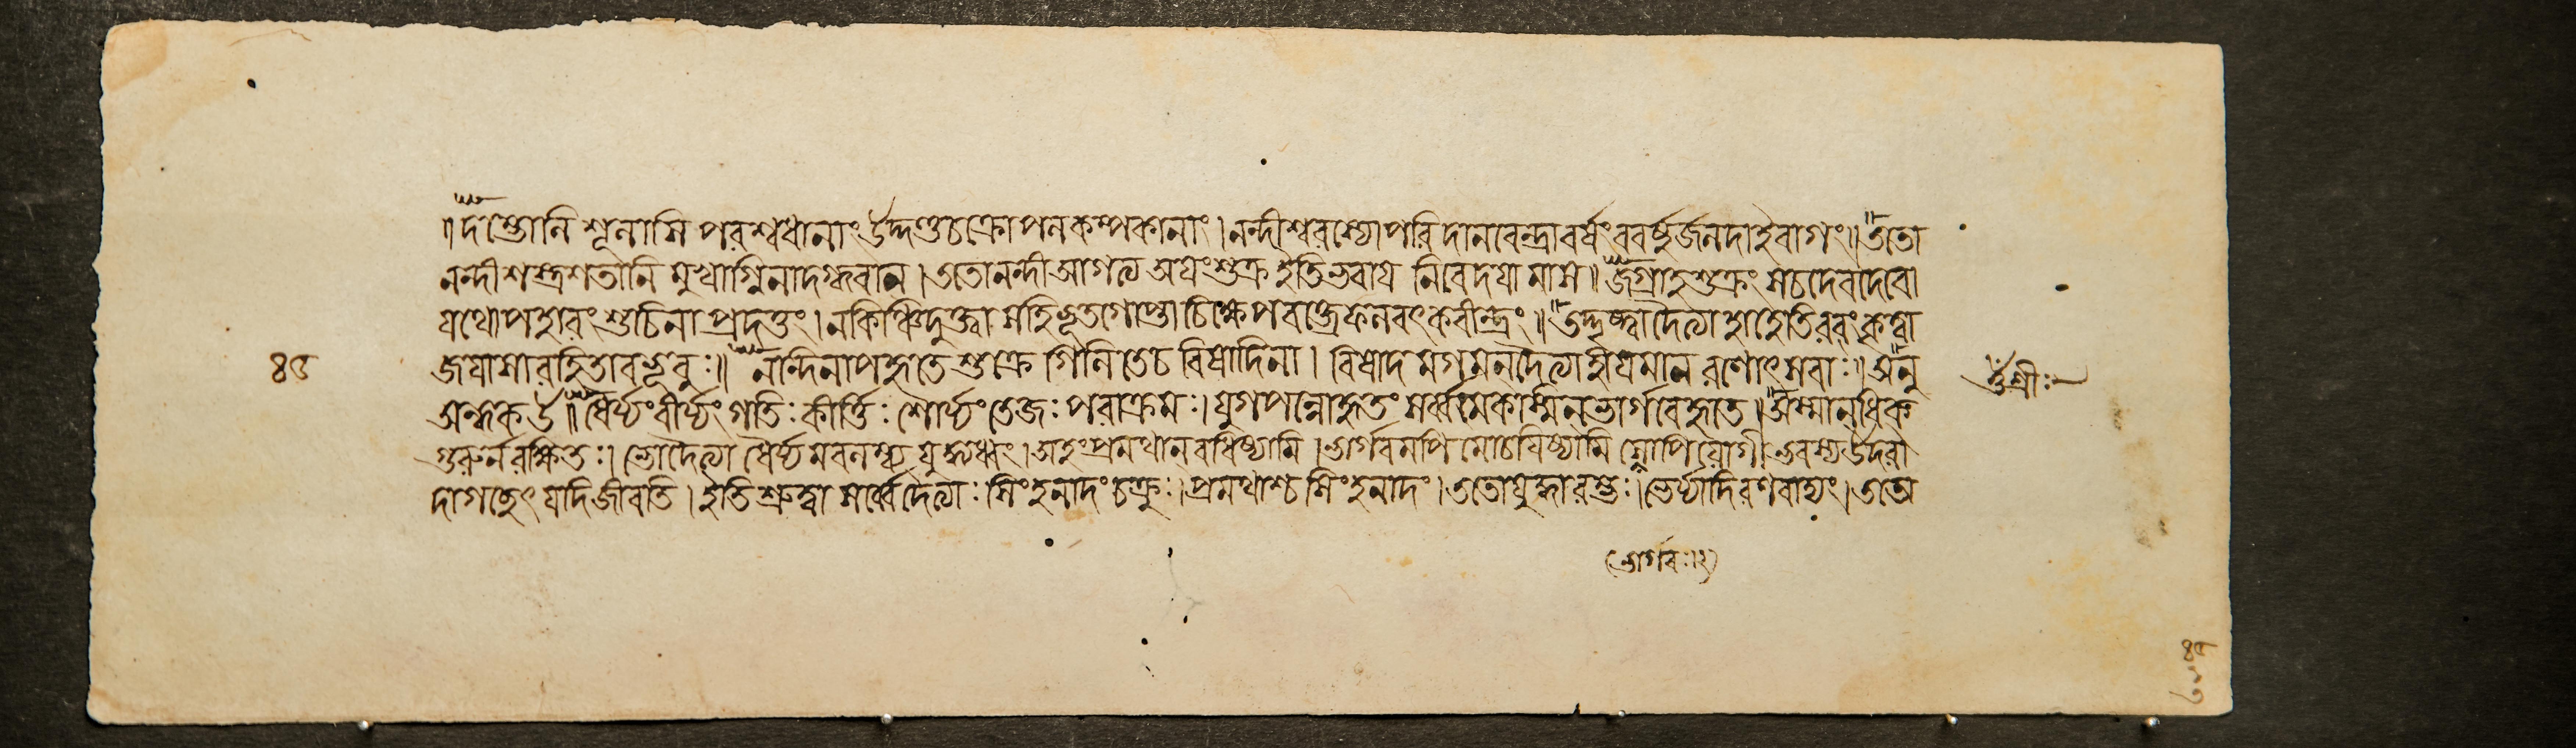 ॥ দম্ভোলি শূলাসি পরশ্বধানাং উদ্দণ্ডচক্রোপলকম্পকানাং । নন্দীশ্বরস্যোপরি দানবেন্দ্রা বর্ষং ববর্ষুর্জলদা ইবাগং ॥ ততো
নন্দী শস্ত্রশতানি মুখাগ্নিনা দগ্ধবান । ততো নন্দী আগত্য অয়ং শুক্র ইতি ভবায় নিবেদয়ামাস ॥ জগ্রাহ শুক্রং স চ দেবদেবো
যথোপহারং শুচিনা প্রদত্তং । ন কিঞ্চিদুক্ত্বা স হি ভূতগোপ্তা চিক্ষেপ বক্ত্রে ফলবৎ কবীন্দ্রং ॥ তদ্দৃষ্ট্বা দৈত্যা হাহেতি রবং কৃত্বা
জয়াশারহিতা বভূবুঃ ॥ নন্দিনাপহৃতে শুক্রে গিলিতে চ বিষাদিনা । বিষাদমগমন্দৈত্যা হীয়মান রণোৎসবাঃ ॥ অনু
অন্ধক উ ॥ ধৈর্য্যং বীর্য্যং গতিঃ কীর্ত্তিঃ শৌর্য্যং তেজঃ পরাক্রমঃ । যুগপন্নোহৃতং সর্ব্বমেকস্মিন ভার্গবে হৃতে । অস্মান্ ধিক
গুরুর্ন রক্ষিতঃ । ভো দৈত্যা ধৈর্য্যমবলম্ব্য যুদ্ধ্যধ্বং । অহং প্রমথান বধিষ্যামি । ভার্গবমপি মোচয়িষ্যামি সোপি যোগী ভবস্য উদরা
দাগচ্ছেৎ যদি জীবতি । ইতি শ্রুত্বা সর্ব্বে দৈত্যাঃ সিংহনাদং চক্রুঃ । প্রমথাশ্চ সিংহনাদং । ততো যুদ্ধারম্ভঃ । ভের্য্যাদি রণবাদ্যং । তত্র
৪৫
শ্রীঃ
(ভার্গবঃ।২)
৪৫